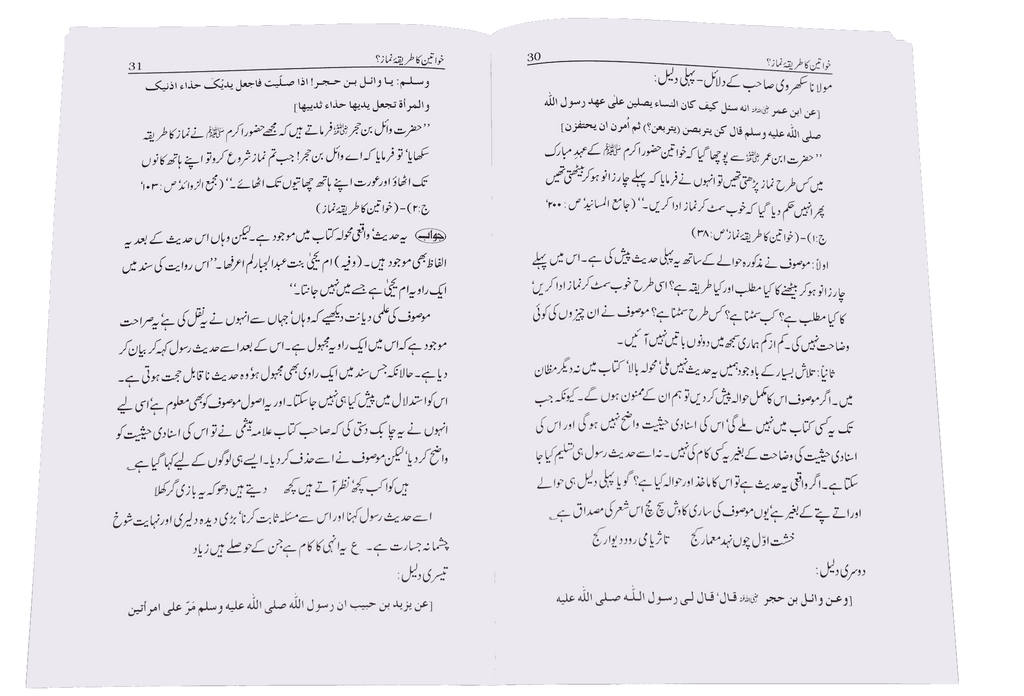 خواتین کا طریقۂ نماز؟ 30
مولانا سکھروی صاحب کے دلائل - پہلی دلیل:
[عن ابن عمر رضی اللہ عنہ انه سئل كيف كان النساء يصلين على عهد رسول الله
صلى الله عليه وسلم قال كن يتربصن (يتربعن؟) ثم أمرن ان يحتفزن]
’’حضرت ابن عمر رضی اللہ عنہ سے پوچھا گیا کہ خواتین حضور اکرم ﷺ کے عہد مبارک
میں کس طرح نماز پڑھتی تھیں تو انہوں نے فرمایا کہ پہلے چار زانو ہو کر بیٹھتی تھیں
پھر انہیں حکم دیا گیا کہ خوب سمٹ کر نماز ادا کریں۔‘‘ (جامع المسانید‘ ص: ۴۰۰‘
ج:۱)-(خواتین کا طریقۂ نماز‘ ص: ۳۸)
اولاً: موصوف نے مذکورہ حوالے کے ساتھ یہ پہلی حدیث پیش کی ہے۔ اس میں پہلے
چار زانو ہو کر بیٹھنے کا کیا مطلب اور کیا طریقہ ہے؟ اسی طرح خوب سمٹ کر نماز ادا کریں‘
کا کیا مطلب ہے؟ کب سمٹنا ہے؟ کس طرح سمٹنا ہے؟ موصوف نے ان چیزوں کی کوئی
وضاحت نہیں کی۔ کم از کم ہماری سمجھ میں دونوں باتیں نہیں آئیں۔
ثانیاً: تلاش بسیار کے باوجود ہمیں یہ حدیث نہیں ملی‘ محولہ بالا‘ کتاب میں نہ دیگر مظان
میں۔ اگر موصوف اس کا مکمل حوالہ پیش کر دیں تو ہم ان کے ممنون ہوں گے۔ کیونکہ جب
تک یہ کسی کتاب میں نہیں ملے گی‘ اس کی اسنادی حیثیت واضح نہیں ہو گی اور اس کی
اسنادی حیثیت کی وضاحت کے بغیر یہ کسی کام کی نہیں۔ نہ اسے حدیث رسول ہی تسلیم کیا جا
سکتا ہے۔ اگر واقعی یہ حدیث ہے تو اس کا ماخذ اور حوالہ کیا ہے؟ گویا پہلی دلیل ہی حوالے
اور اتے پتے کے بغیر ہے‘ یوں موصوف کی ساری کاوش سچ مچ اس شعر کی مصداق ہے ؎
خشت اوّل چوں نہد معمار کج تا ثریا می رود دیوار کج
دوسری دلیل:
[وعن وائل بن حجر رضی اللہ عنہ قال‘ قال لى رسول الله صلى الله عليه
خواتین کا طریقۂ نماز؟ 31
وسلم: يا وائل بن حجر! اذا صلّيت فاجعل يديْك حذاء اذنيك
والمرأة تجعل يديها حذاء ثدييها]
’’حضرت وائل بن حجر رضی اللہ عنہ فرماتے ہیں کہ مجھے حضور اکرم ﷺ نے نماز کا طریقہ
سکھایا‘ تو فرمایا کہ اے وائل بن حجر! جب تم نماز شروع کرو تو اپنے ہاتھ کانوں
تک اٹھاؤ اور عورت اپنے ہاتھ چھاتیوں تک اٹھائے۔‘‘ (مجمع الزوائد‘ ص: ۱۰۳‘
ج:۲)-(خواتین کا طریقۂ نماز)
جواب یہ حدیث‘ واقعی محولہ کتاب میں موجود ہے۔ لیکن وہاں اس حدیث کے بعد یہ
الفاظ بھی موجود ہیں۔ (وفیہ) ام یحییٰ بنت عبدالجبار لم اعرفھا۔ ’’اس روایت کی سند میں
ایک راویہ ام یحییٰ ہے جسے میں نہیں جانتا۔‘‘
موصوف کی علمی دیانت دیکھیے کہ وہاں‘ جہاں سے انہوں نے یہ نقل کی ہے‘ یہ صراحت
موجود ہے کہ اس میں ایک راویہ مجہول ہے۔ اس کے بعد اسے حدیث رسول کہہ کر بیان کر
دیا ہے۔ حالانکہ جس سند میں ایک راوی بھی مجہول ہو‘ وہ حدیث ناقابل حجت ہوتی ہے۔
اس کو استدلال میں پیش کیا ہی نہیں جا سکتا۔ اور یہ اصول موصوف کو بھی معلوم ہے‘ اسی لیے
انہوں نے یہ چابک دستی کی کہ صاحب کتاب علامہ ہیثمی نے تو اس کی اسنادی حیثیت کو
واضح کر دیا‘ لیکن موصوف نے اسے حذف کر دیا۔ ایسے ہی لوگوں کے لیے کہا گیا ہے ؎
ہیں کواکب کچھ‘ نظر آتے ہیں کچھ دیتے ہیں دھوکہ یہ بازی گر کھلا
اسے حدیث رسول کہنا اور اس سے مسئلہ ثابت کرنا‘ بڑی دیدہ دلیری اور نہایت شوخ
چشمانہ جسارت ہے۔ ع یہ انہی کا کام ہے جن کے حوصلے ہیں زیاد
تیسری دلیل:
[عن يزيد بن حبيب ان رسول الله صلى الله عليه وسلم مَرّ على امرأتين